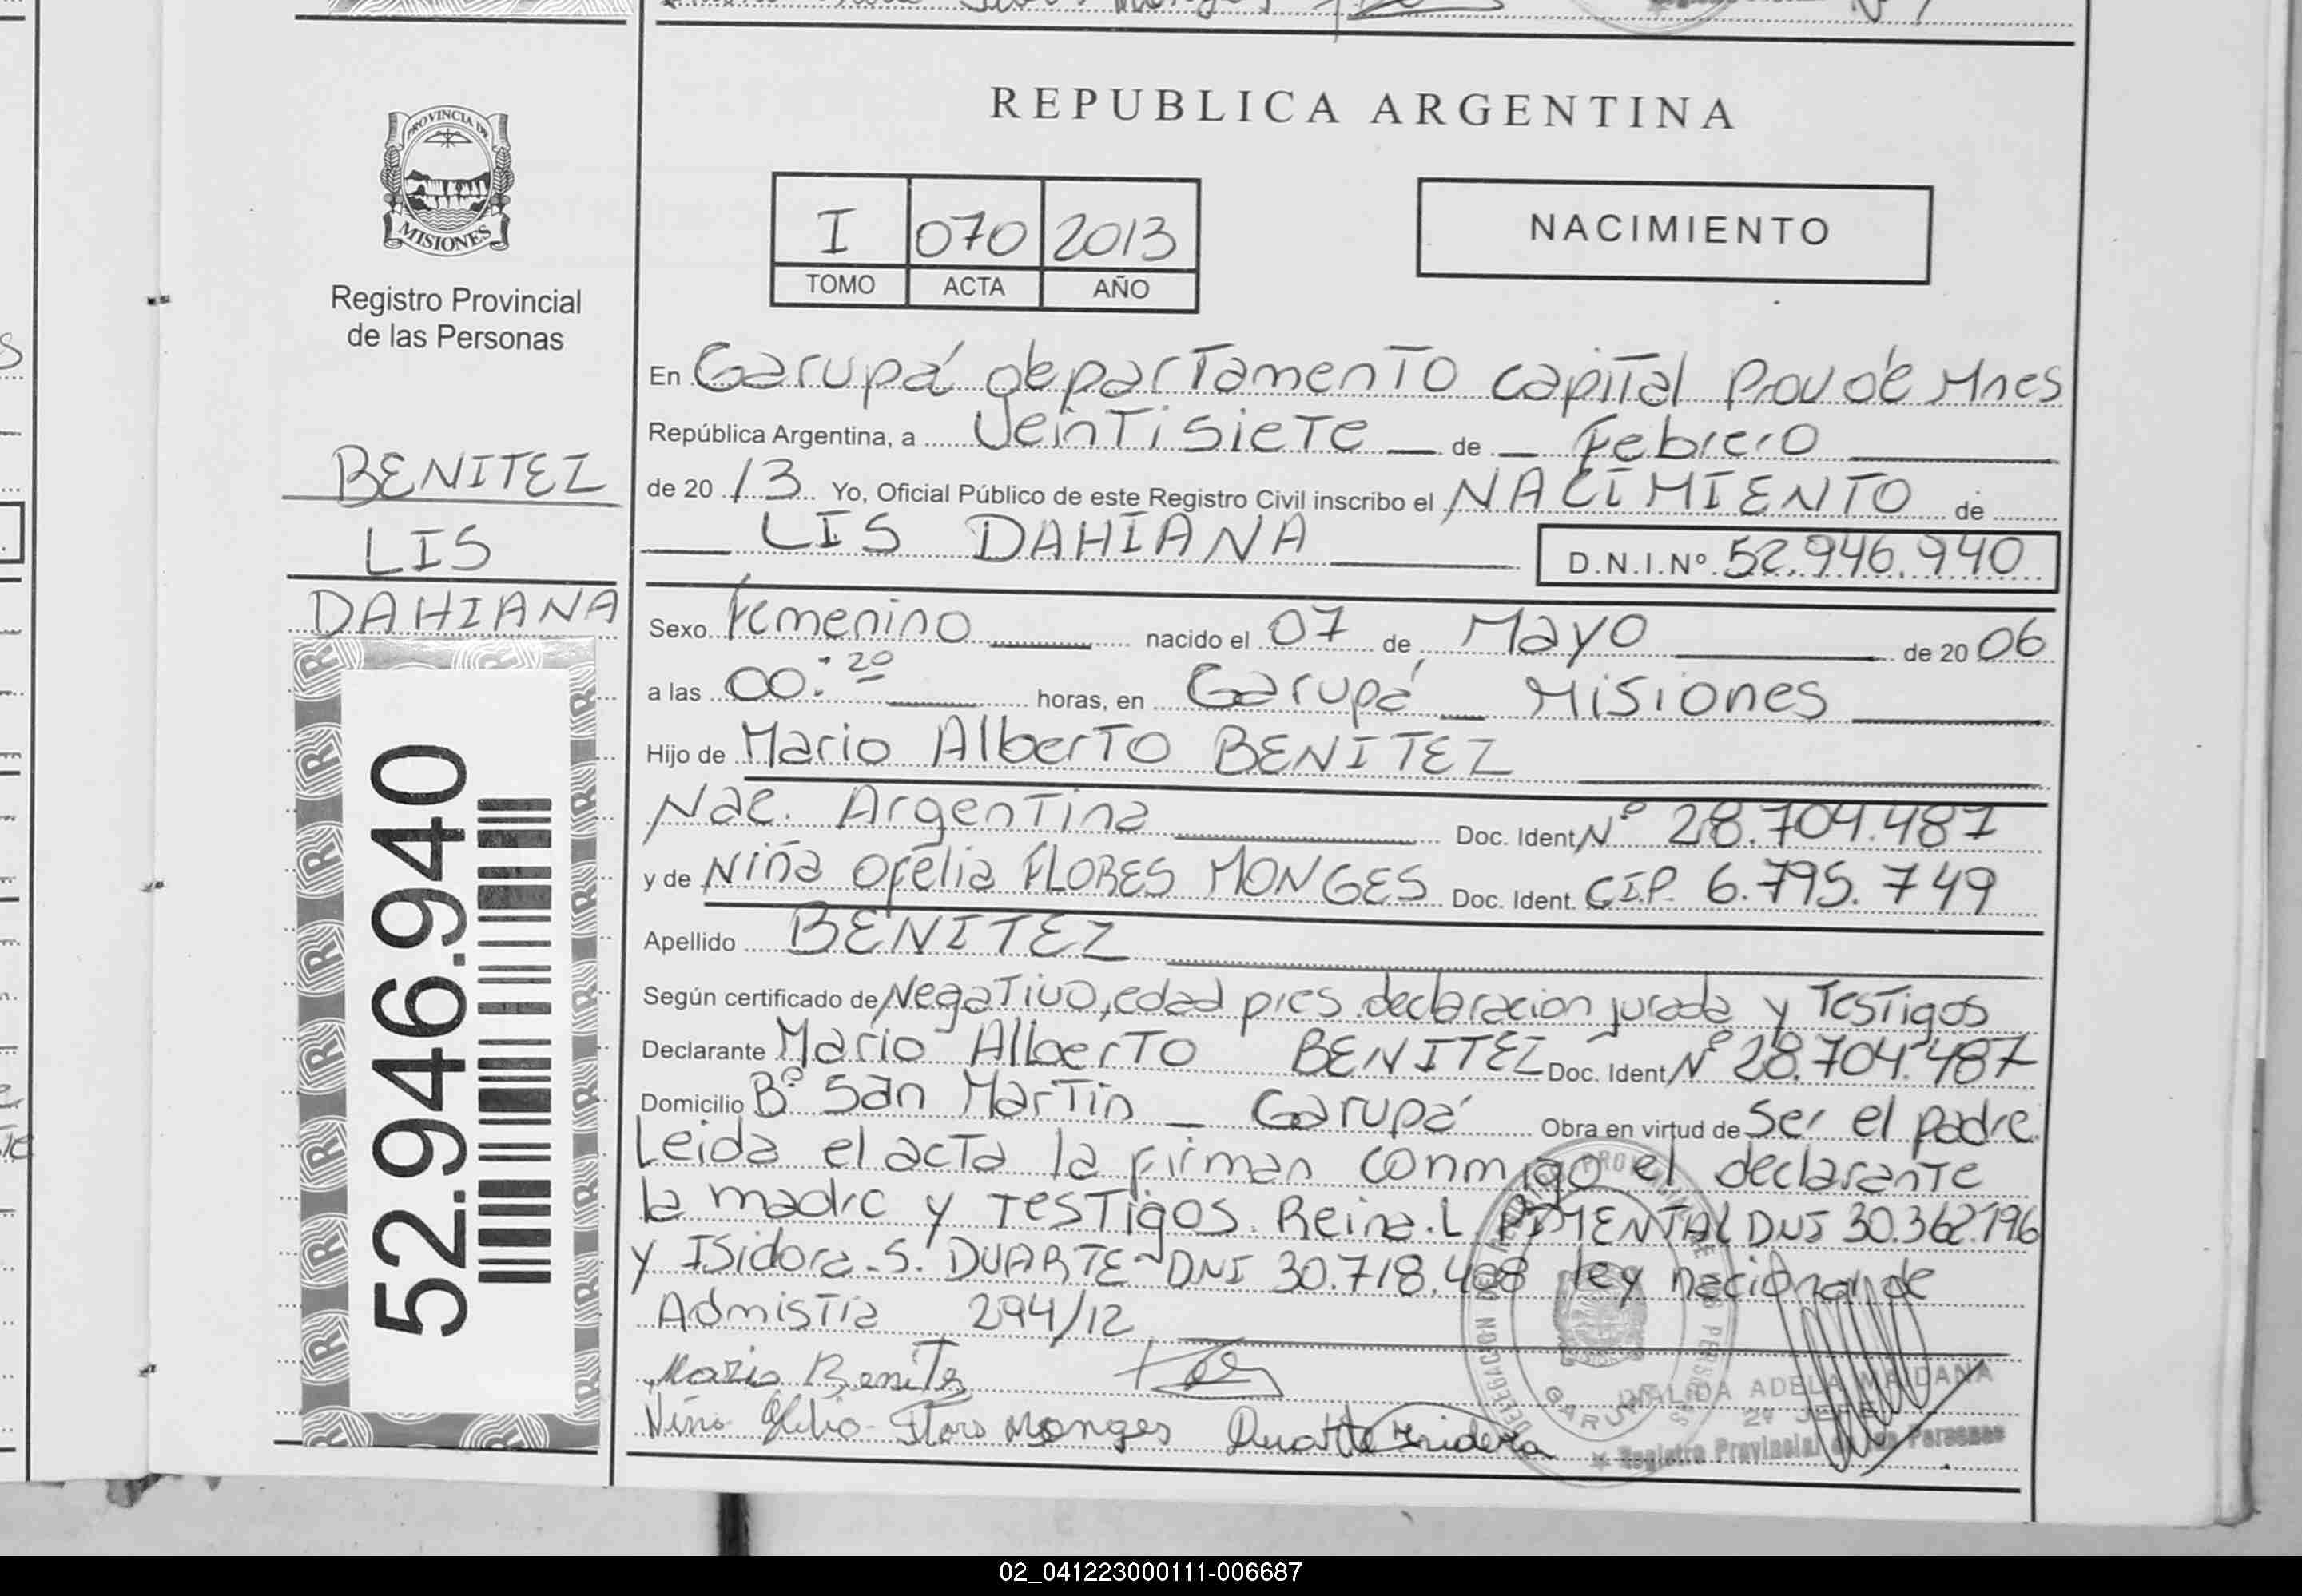 PROVINCIA DE
MISIONES
Registro Provincial
de las Personas
BENITEZ
LIS
DAHIANA
52.946.940
REPUBLICA ARGENTINA
I 070 2013
TOMO ACTA AÑO
NACIMIENTO
En Garupá departamento Capital Prov de Mnes
República Argentina, a Veintisiete de Febrero
de 2013 Yo, Oficial Público de este Registro Civil inscribo el NACIMIENTO de
LIS DAHIANA
D.N.I.Nº 52.946.940
Sexo Femenino nacido el 07 de Mayo de 2006
a las 00:20 horas, en Garupá Misiones
Hijo de Mario Alberto BENITEZ
Nac. Argentina Doc. Ident. Nº 28.704.487
y de Niña Ofelia FLORES MONGES Doc. Ident. C.I.P. 6.795.749
Apellido BENITEZ
Según certificado de Negativo, edad pres declaracion jurada y Testigos
Declarante Mario Alberto BENITEZ Doc. Ident. Nº 28.704.487
Domicilio Bº San Martin Garupá Obra en virtud de Ser el padre
Leida el acta la firman conmigo el declarante
la madre y Testigos. Reina.L PIMENTAL DNI 30.362.196
y Isidora.S. DUARTE DNI 30.718.408 ley nacional de
Admistia 294/12
Mario Benitez
Niña Ofelia Flores Monges Duarte Isidora
GARUPA
DALIDA ADELA MAIDANA
2º JEFE
Registro Provincial de las Personas
02_041223000111-006687